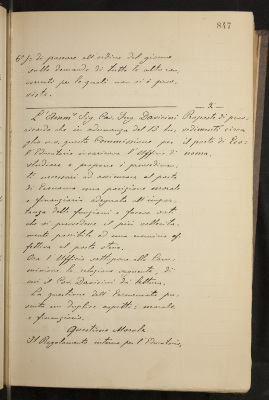 847
6º/ di passare all'ordine del giorno
sulla domanda di tutte le altre con,
correnti per le quali non si è prov,
visto.
L'Amm.re Sig. Cav. Ing. Davicini
ricorda che in adunanza del 13 lu,
glio u.s. questa Commissione per
l'Educatorio incaricava l'Ufficio di
studiare e proporre i provvedimen,
ti necessari ad assicurare al posto
di Economa una posizione morale
e finanziaria adeguata all'impor,
tanza delle funzioni e fare sì
che si provvedesse il più sollecita,
mente possibile ad una nomina ef,
fettiva al posto stesso.
Ora l'Ufficio sottopone alla Com,
missione la relazione seguente, di
cui il Cav. Davicini dà lettura.
La questione dell'Economato pre,
senta un duplice aspetto: morale,
e finanziario.
Questione Morale
Il Regolamento interno per l'Educatorio,
2
Proposte di prov,
vedimenti circa
il posto di Eco,
noma.